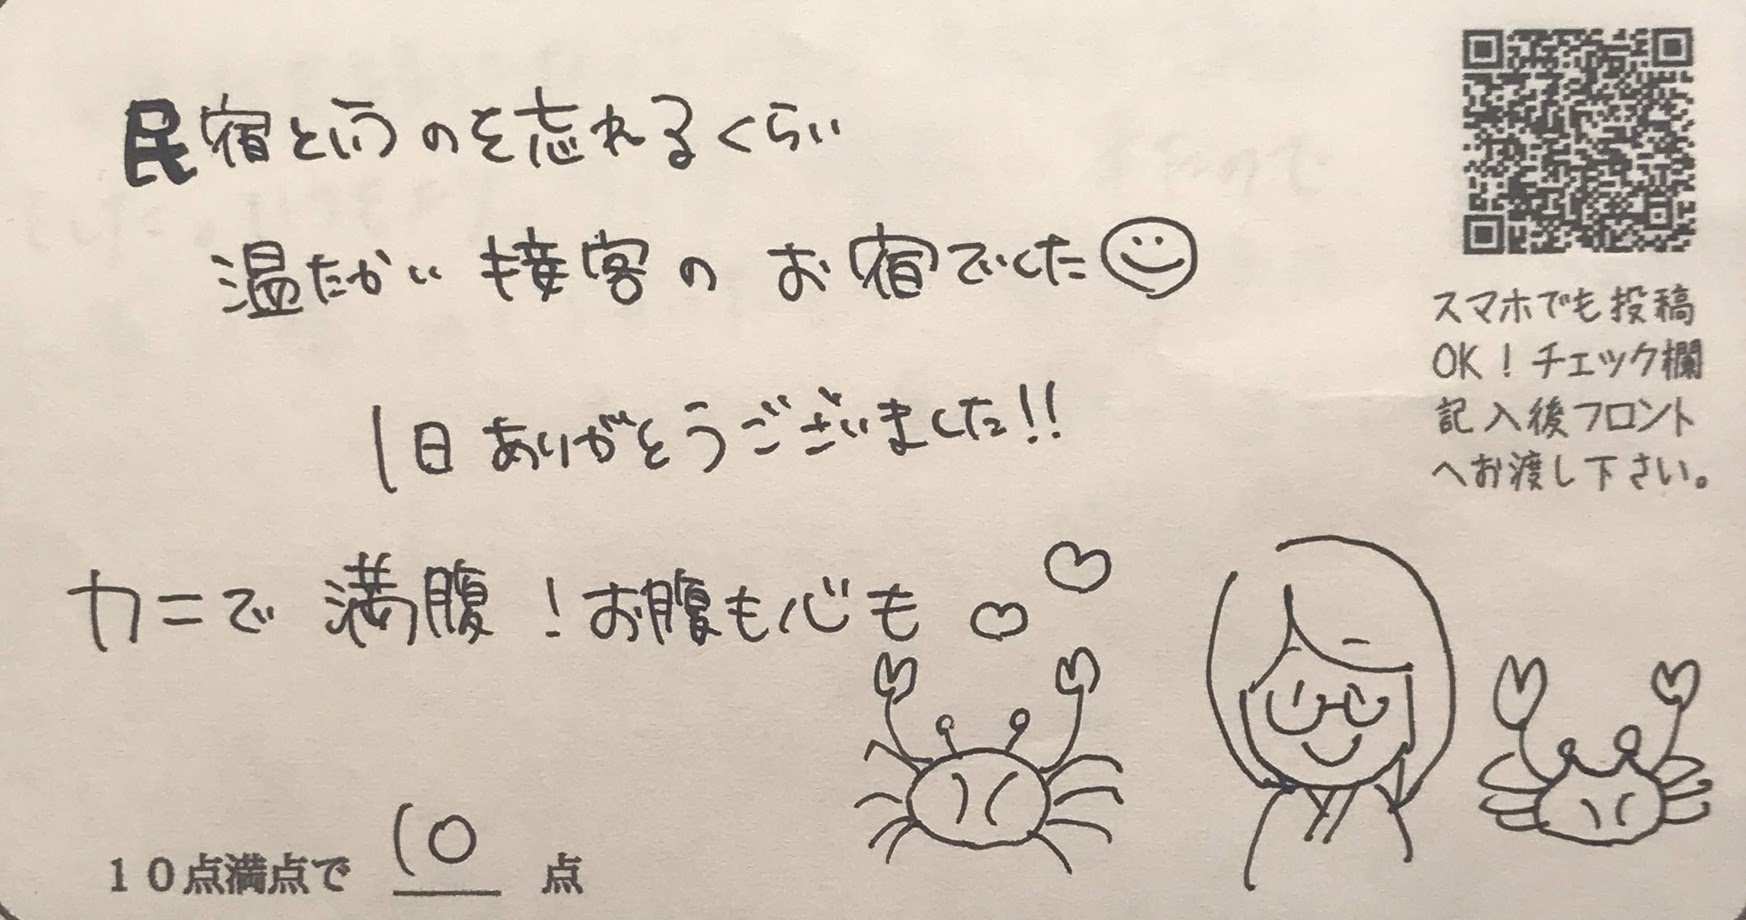 民宿というのを忘れるくらい
温たかい接客のお宿でした
1日ありがとうございました!!
カニで満腹！お腹も心も
10点満点で 10 点
スマホでも投稿
OK！チェック欄
記入後フロント
へお渡し下さい。